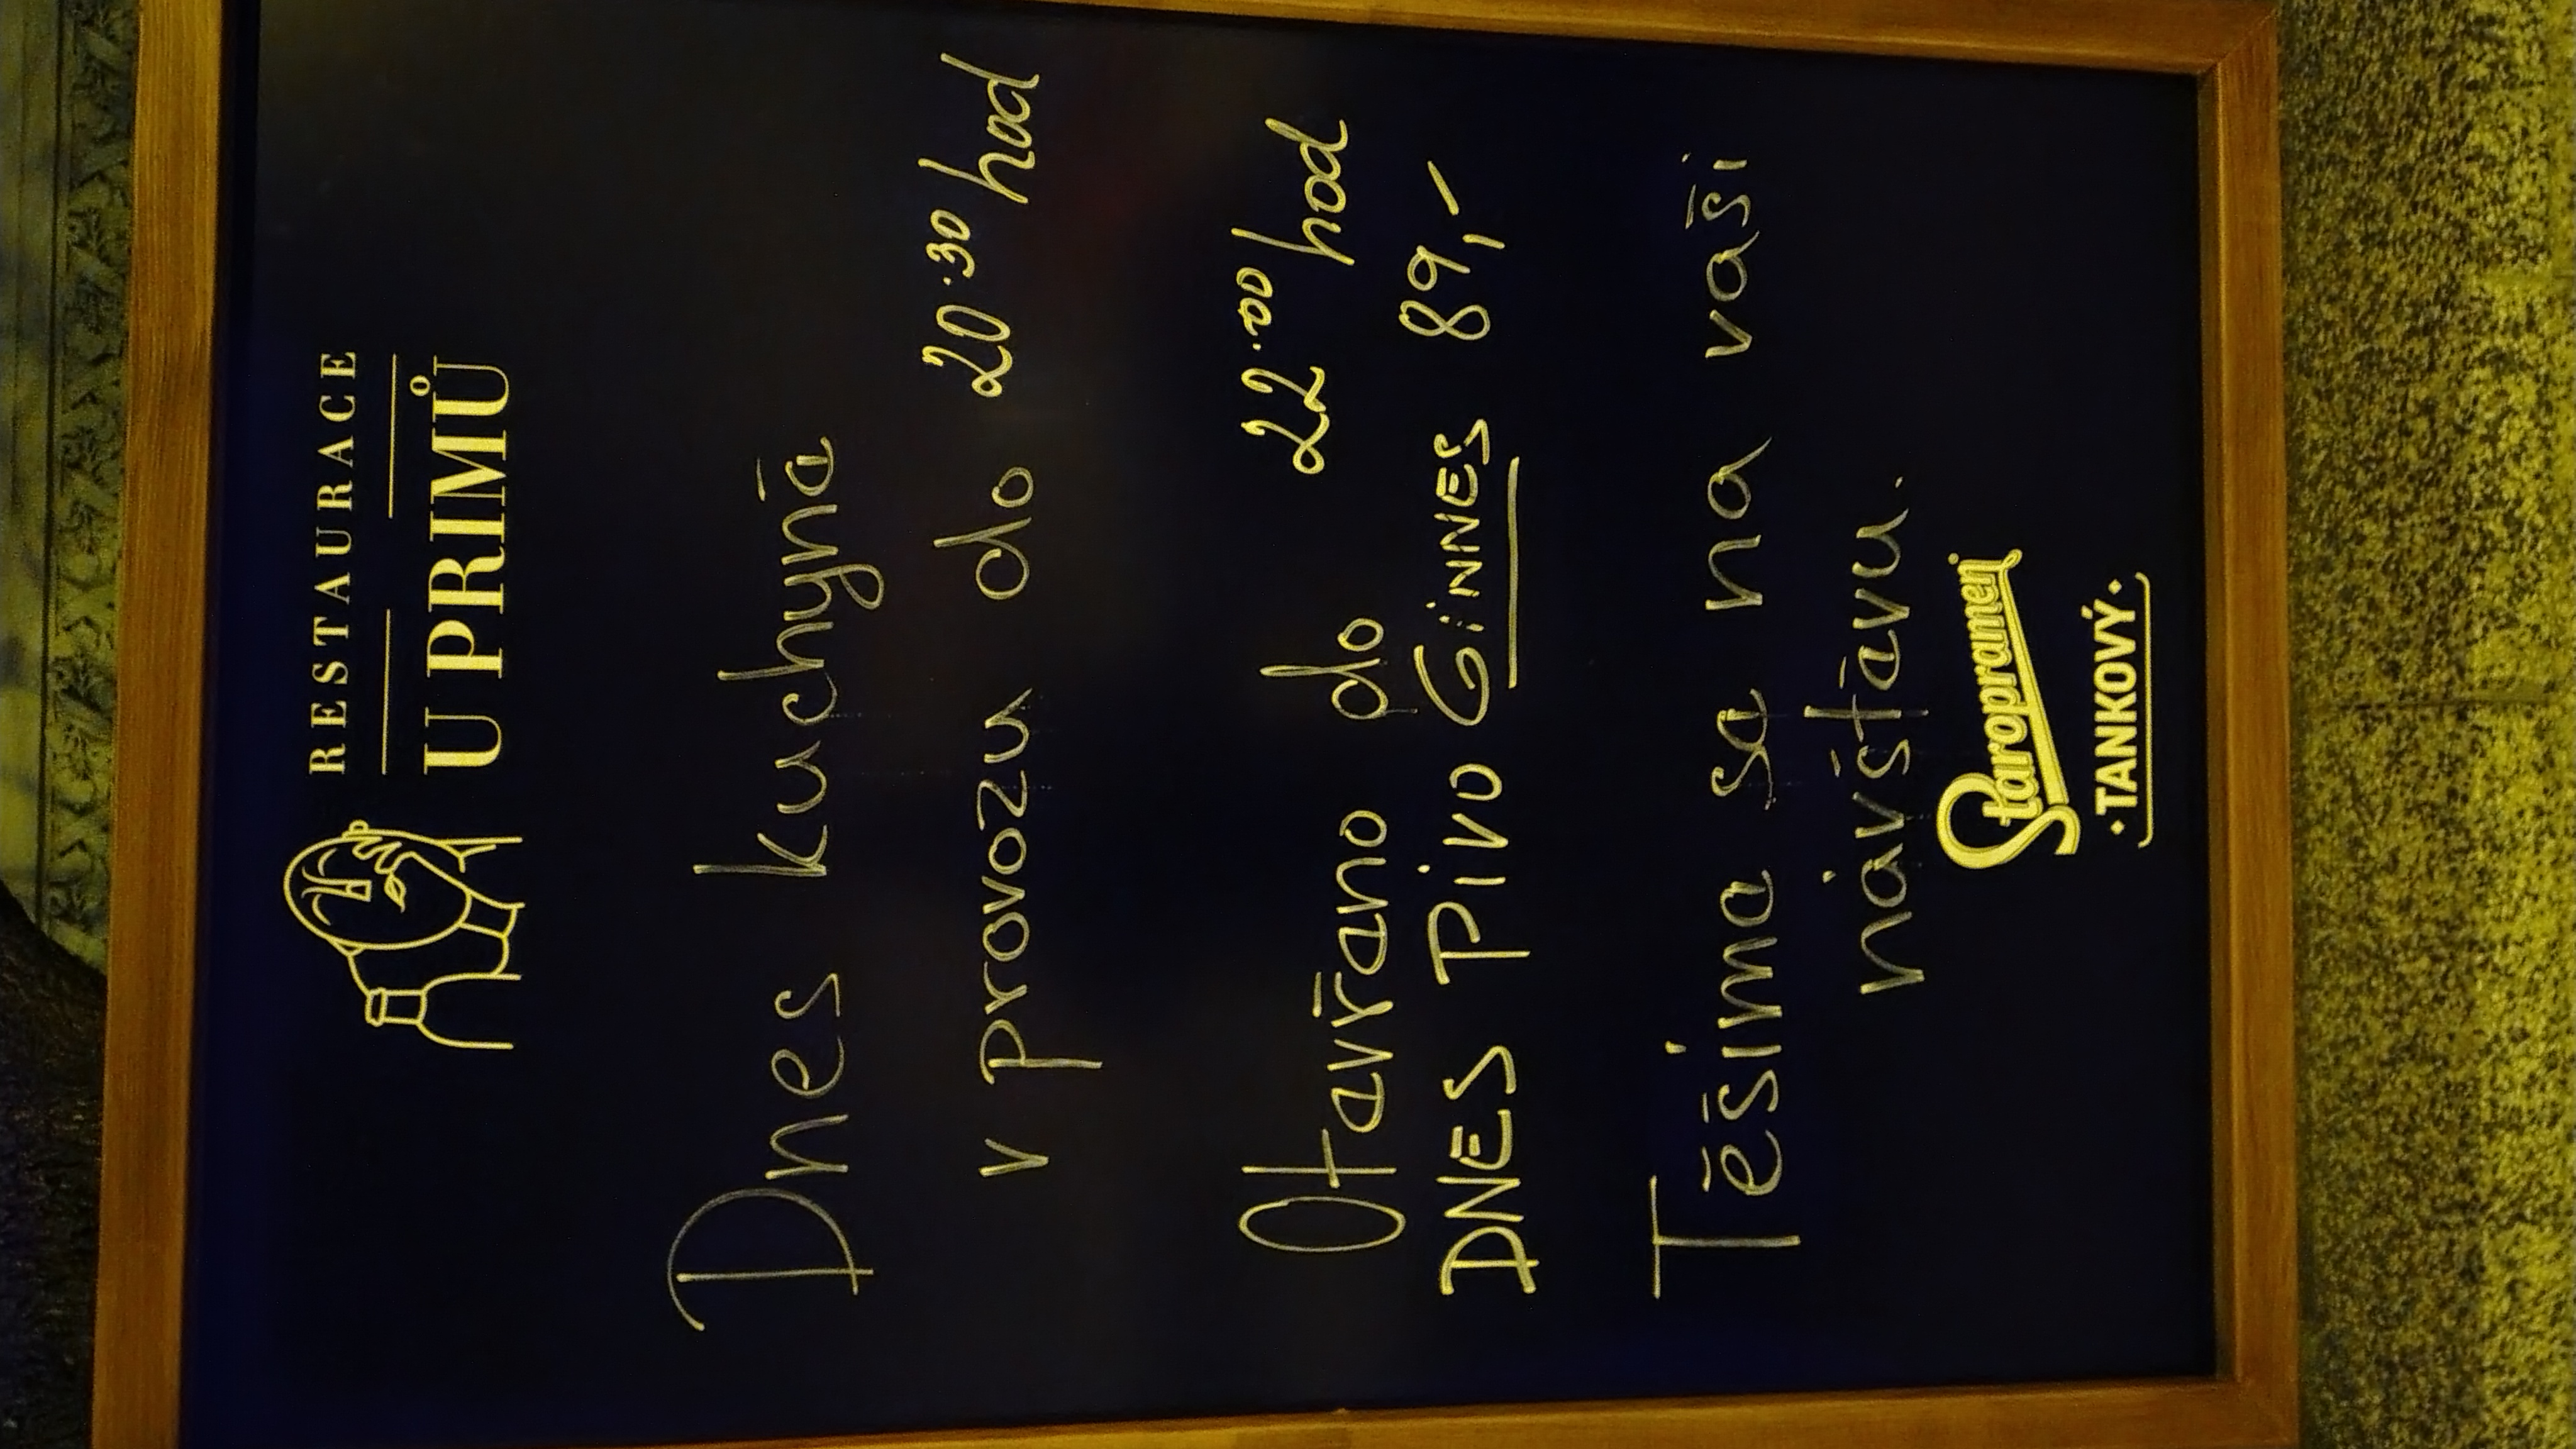 RESTAURACE
U PRIMŮ
Dnes kuchyně
v provozu do 20.30 hod
Otavřeno do 22.00 hod
DNES PIVO GiNNES 89,-
Těšíme se na vaši
návštěvu.
Staropramen
·TANKOVÝ·